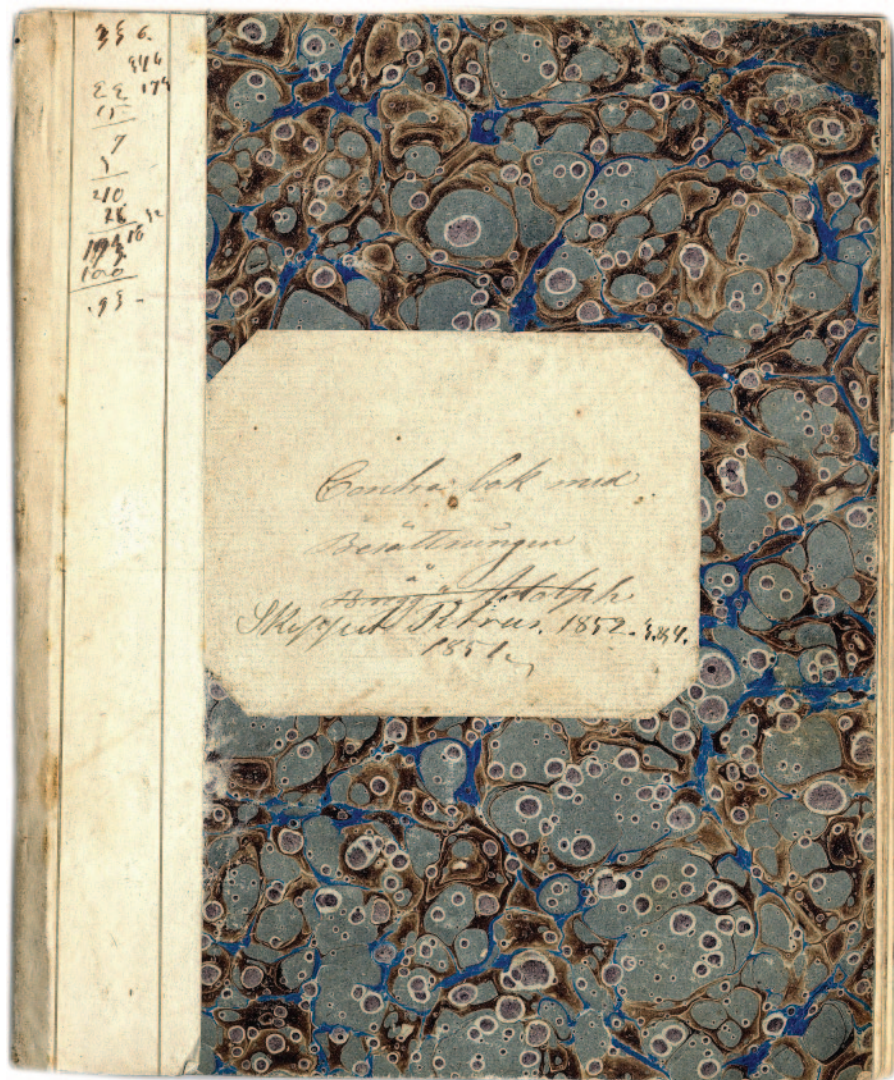 336.
346
22 179
15
7
210
26 32
16
100
.93-
Contra bok med
Besättningen
å
Brigg Adolph
Skeppet Petrus. 1852. 3.&4.
1851.